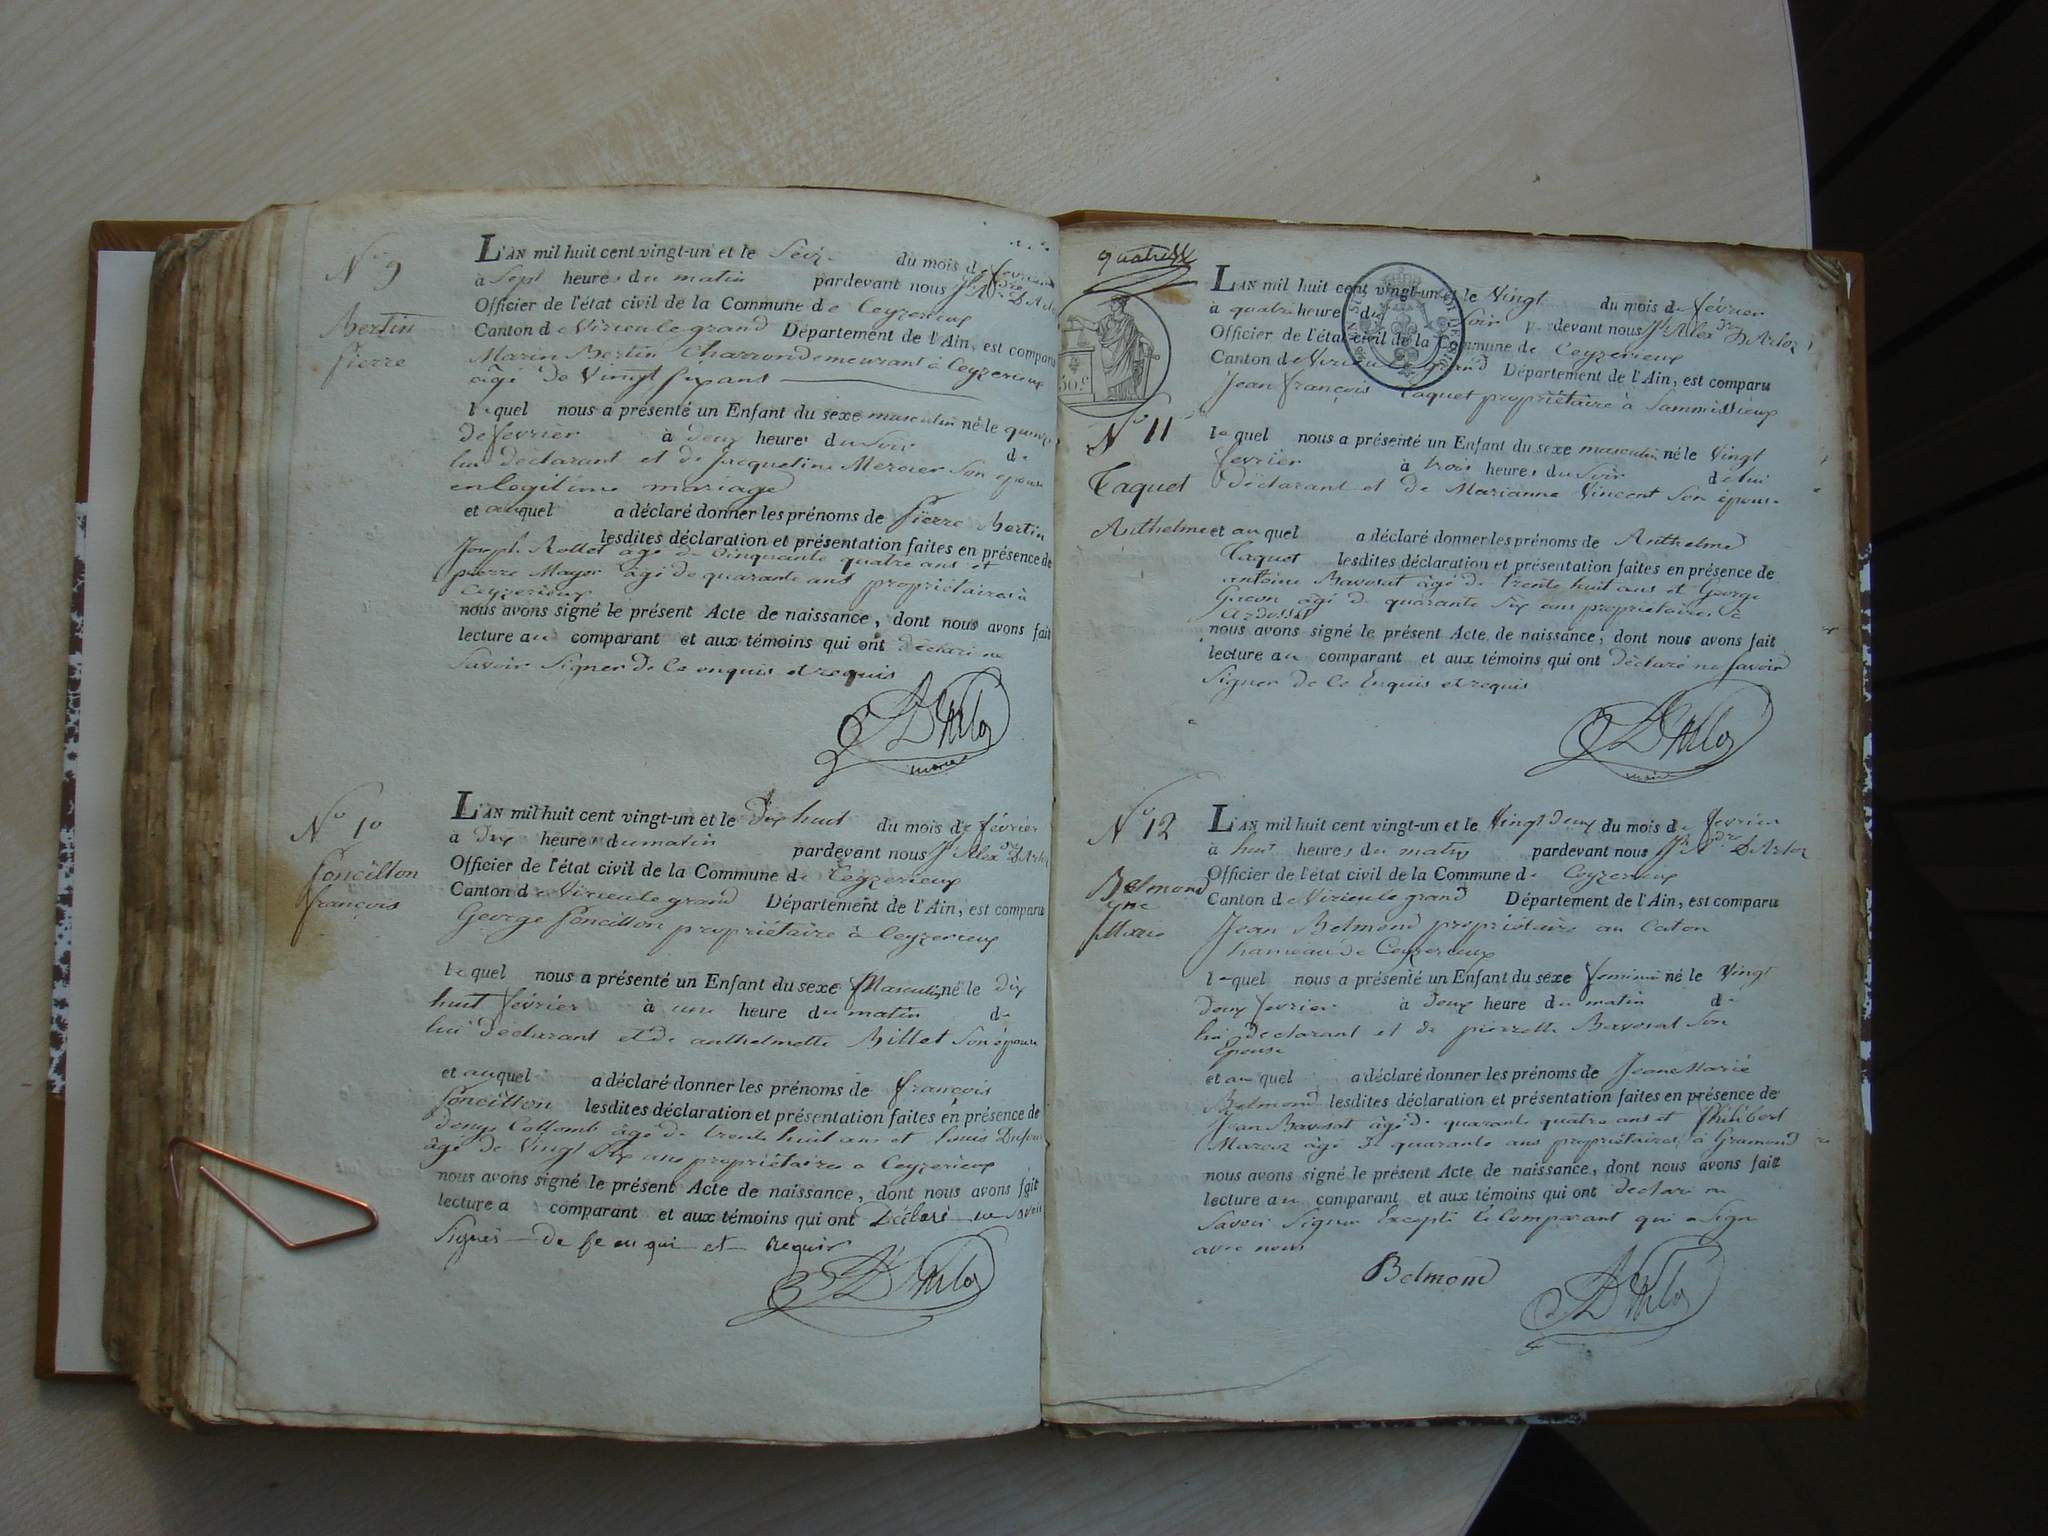 N° 9
Bertin
Pierre
L'AN mil huit cent vingt-un et le Seize du mois de février
à Sept heures du matin pardevant nous Jh Adre D'Arloz
Officier de l'état civil de la Commune de Ceyzerieux
Canton de Virieu le grand Département de l'Ain, est comparu
Marin Bertin Charron demeurant à Ceyzerieux
âgé de Vingt six ans
lequel nous a présenté un Enfant du sexe masculin né le quinze
de fevrier à deux heures du Soir de
lui déclarant et de Jacqueline Mercier Son épouse
en legitime mariage
et auquel a déclaré donner les prénoms de Pierre Bertin
lesdites déclaration et présentation faites en présence de
Joseph Rollet âgé de Cinquante quatre ans et
pierre Mayer âgé de quarante ans propriétaires à
Ceyzerieux
nous avons signé le présent Acte de naissance, dont nous avons fait
lecture au comparant et aux témoins qui ont déclaré ne
Savoir Signer de Ce enquis et requis
D'Arloz
maire
N° 10
Poncillon
françois
L'AN mil huit cent vingt-un et le dix huit du mois de février
à dix heures du matin pardevant nous Jh Alexdre D'Arloz
Officier de l'état civil de la Commune de Ceyzerieux
Canton de Virieu le grand Département de l'Ain, est comparu
George Poncillon propriétaire à Ceyzerieux
lequel nous a présenté un Enfant du sexe Masculin né le dix
huit février à une heure du matin de
lui déclarant et de anthelmette Billet Son épouse
et auquel a déclaré donner les prénoms de françois
Poncillon lesdites déclaration et présentation faites en présence de
denys Collomb âgé de trente huit ans et Louis Dufour
âgé de Vingt Six ans propriétaires a Ceyzerieux
nous avons signé le présent Acte de naissance, dont nous avons fait
lecture a comparant et aux témoins qui ont Déclaré ne Savoir
Signer de Ce enqui et Requis
D'Arloz
quatre
50 c
N° 11
Taquet
Anthelme
L'AN mil huit cent vingt-un et le Vingt du mois de février
à quatre heures du Soir pardevant nous Jh Alexdre D'Arloz
Officier de l'état civil de la Commune de Ceyzerieux
Canton de Virieu le grand Département de l'Ain, est comparu
Jean François Taquet propriétaire à Sammissieux
lequel nous a présenté un Enfant du sexe masculin né le Vingt
fevrier à trois heures du Soir de lui
déclarant et de Marianne Vincent Son épouse
et auquel a déclaré donner les prénoms de Anthelme
Taquet lesdites déclaration et présentation faites en présence de
antoine Bavosat âgé de trente huit ans et George
âgé de quarante Six ans propriétaires à
nous avons signé le présent Acte de naissance, dont nous avons fait
lecture au comparant et aux témoins qui ont déclaré ne Savoir
Signer de Ce Enquis et requis
D'Arloz
maire
N° 12
Belmond
Jne
Marie
L'AN mil huit cent vingt-un et le Vingt deux du mois de fevrier
à huit heures du matin pardevant nous Jh Adre D'Arloz
Officier de l'état civil de la Commune de Ceyzerieux
Canton de Virieu le grand Département de l'Ain, est comparu
Jean Belmond propriétaire au Caton
hameau de Ceyzerieux
lequel nous a présenté un Enfant du sexe feminin né le Vingt
deux fevrier à deux heure du matin de
lui déclarant et de pierrette Bavosat Son
Epouse
et auquel a déclaré donner les prénoms de Jeane Marie
Belmond lesdites déclaration et présentation faites en présence de
Jean Bavosat âgé de quarante quatre ans et Philibert
âgé de quarante ans propriétaires à Gramond
nous avons signé le présent Acte de naissance, dont nous avons fait
lecture au comparant et aux témoins qui ont déclaré ne
Savoir Signer Excepté le Comparant qui a Signé
avec nous
Belmond
D'Arloz